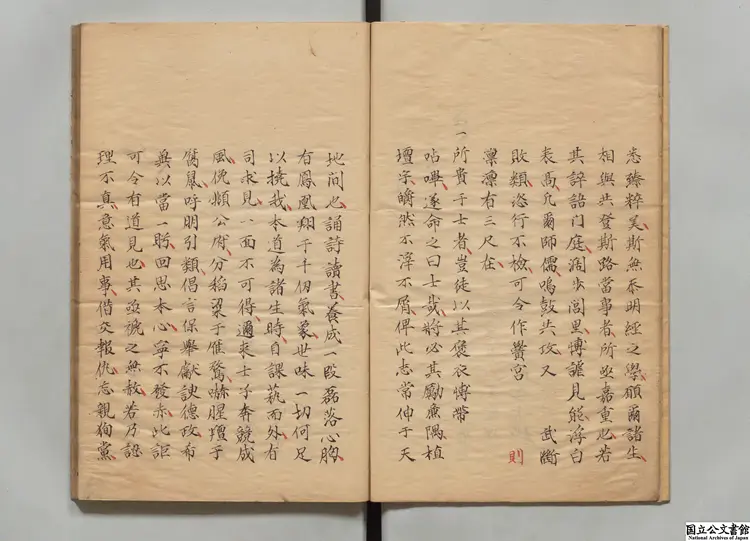 悉臻粹美斯無忝明經之學願爾諸生
相與共登斯路當事者所必嘉重也若
其誶詬門庭濶步閭里慱讌見能浮白
表高允爾師儒鳴鼓共攻又　武斷
敗類恣行不檢可令作黌宮　則
凛凛有三尺在
一所貴于士者豈徒以其褒衣愽帶
呫嗶遂命之曰士哉將必其勵廉隅植
壇宇皭然不滓不屑俾此志常伸于天
地间也誦詩讀書養成一段磊落心胸
有鳳凰翔于千仞氣象世味一切何足
以撓我本道為諸生時自課藝而外有
司求見一面不可得邇來士子奔競成
風俛頫公府分稻粱于雁鶩嚇腥羶于
腐䑕呼明引類倡言保舉獻諛德政希
與以當一眄回思本心寧不發赤此詎
可令有道見也其並褫之無赦若乃認
理不真意氣用事借交報仇忘親狥黨
国立公文書館
National Archives of Japan